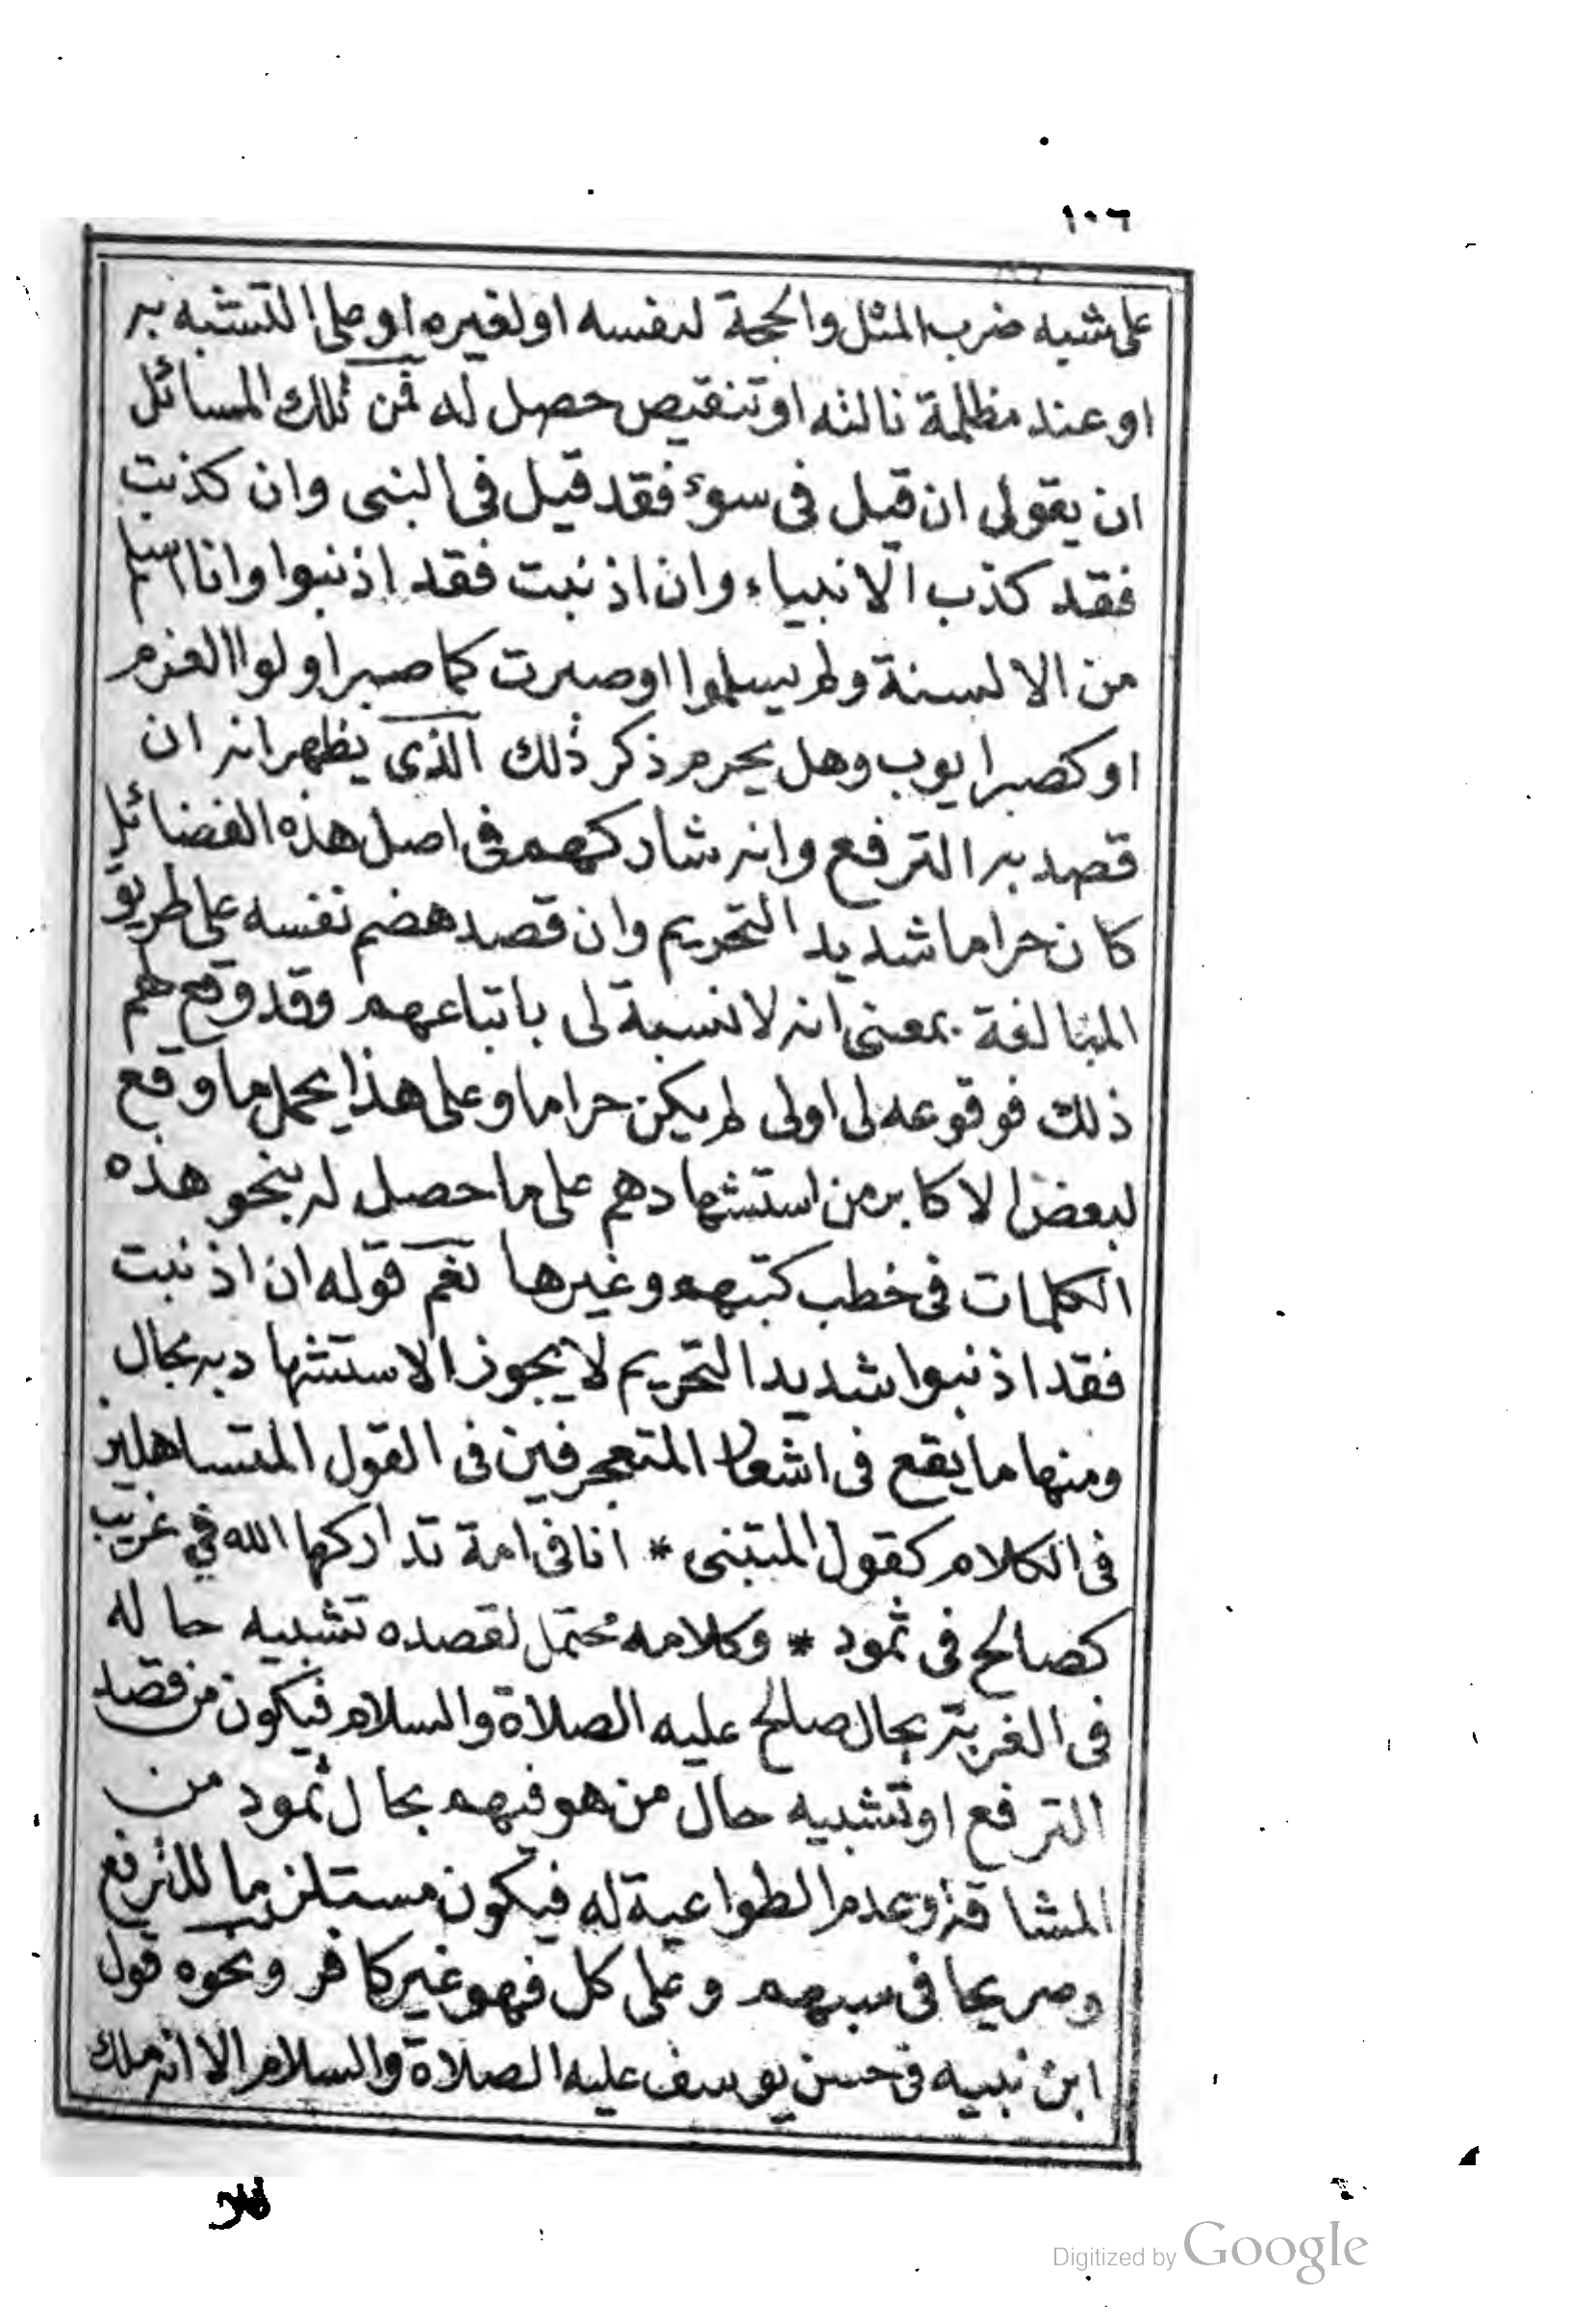 ١٠٦
على شبه ضرب المثل والحجة لنفسه او لغيره او على التشبه به
او عند مظلمة نالته او تنقيص حصل له فمن تلك المسائل
ان يقول ان قيل فى سوء فقد قيل فى النبى وان كذبت
فقد كذب الانبياء وان اذنبت فقد اذنبوا وانا اسلم
من الالسنة ولم يسلموا او صبرت كما صبر اولوا العزم
او كصبر ايوب وهل يحرم ذكر ذلك الذى يظهر انه ان
قصد به الترفع وانه شاركهم فى اصل هذه الفضائل
كان حراما شديد التحريم وان قصد هضم نفسه على طريق
المبالغة بمعنى انه لا نسبة لى باتباعهم وقد وقع لهم
ذلك فوقوعه لى اولى لم يكن حراما وعلى هذا يحمل ما وقع
لبعض الاكابر من استشهادهم على ما حصل له بنحو هذه
الكلمات فى خطب كتبهم وغيرها نعم قوله ان اذنبت
فقد اذنبوا شديد التحريم لا يجوز الاستشهاد به بحال
ومنها ما يقع فى اشعار المتعجرفين فى القول المتساهلين
فى الكلام كقول المتبنى * انا فى امة تداركها الله غريب
كصالح فى ثمود * وكلامه محتمل لقصده تشبيه حاله
فى الغربة بحال صالح عليه الصلاة والسلام فيكون من قصد
الترفع او تشبيه حال من هو فيهم بحال ثمود من
المشاقة وعدم الطواعية له فيكون مستلزما للترفع
وصريحا فى سبهم وعلى كل فهو غير كافر ونحوه قول
ابن نبيه فى حسن يوسف عليه الصلاة والسلام الا انه ملك
Digitized by Google